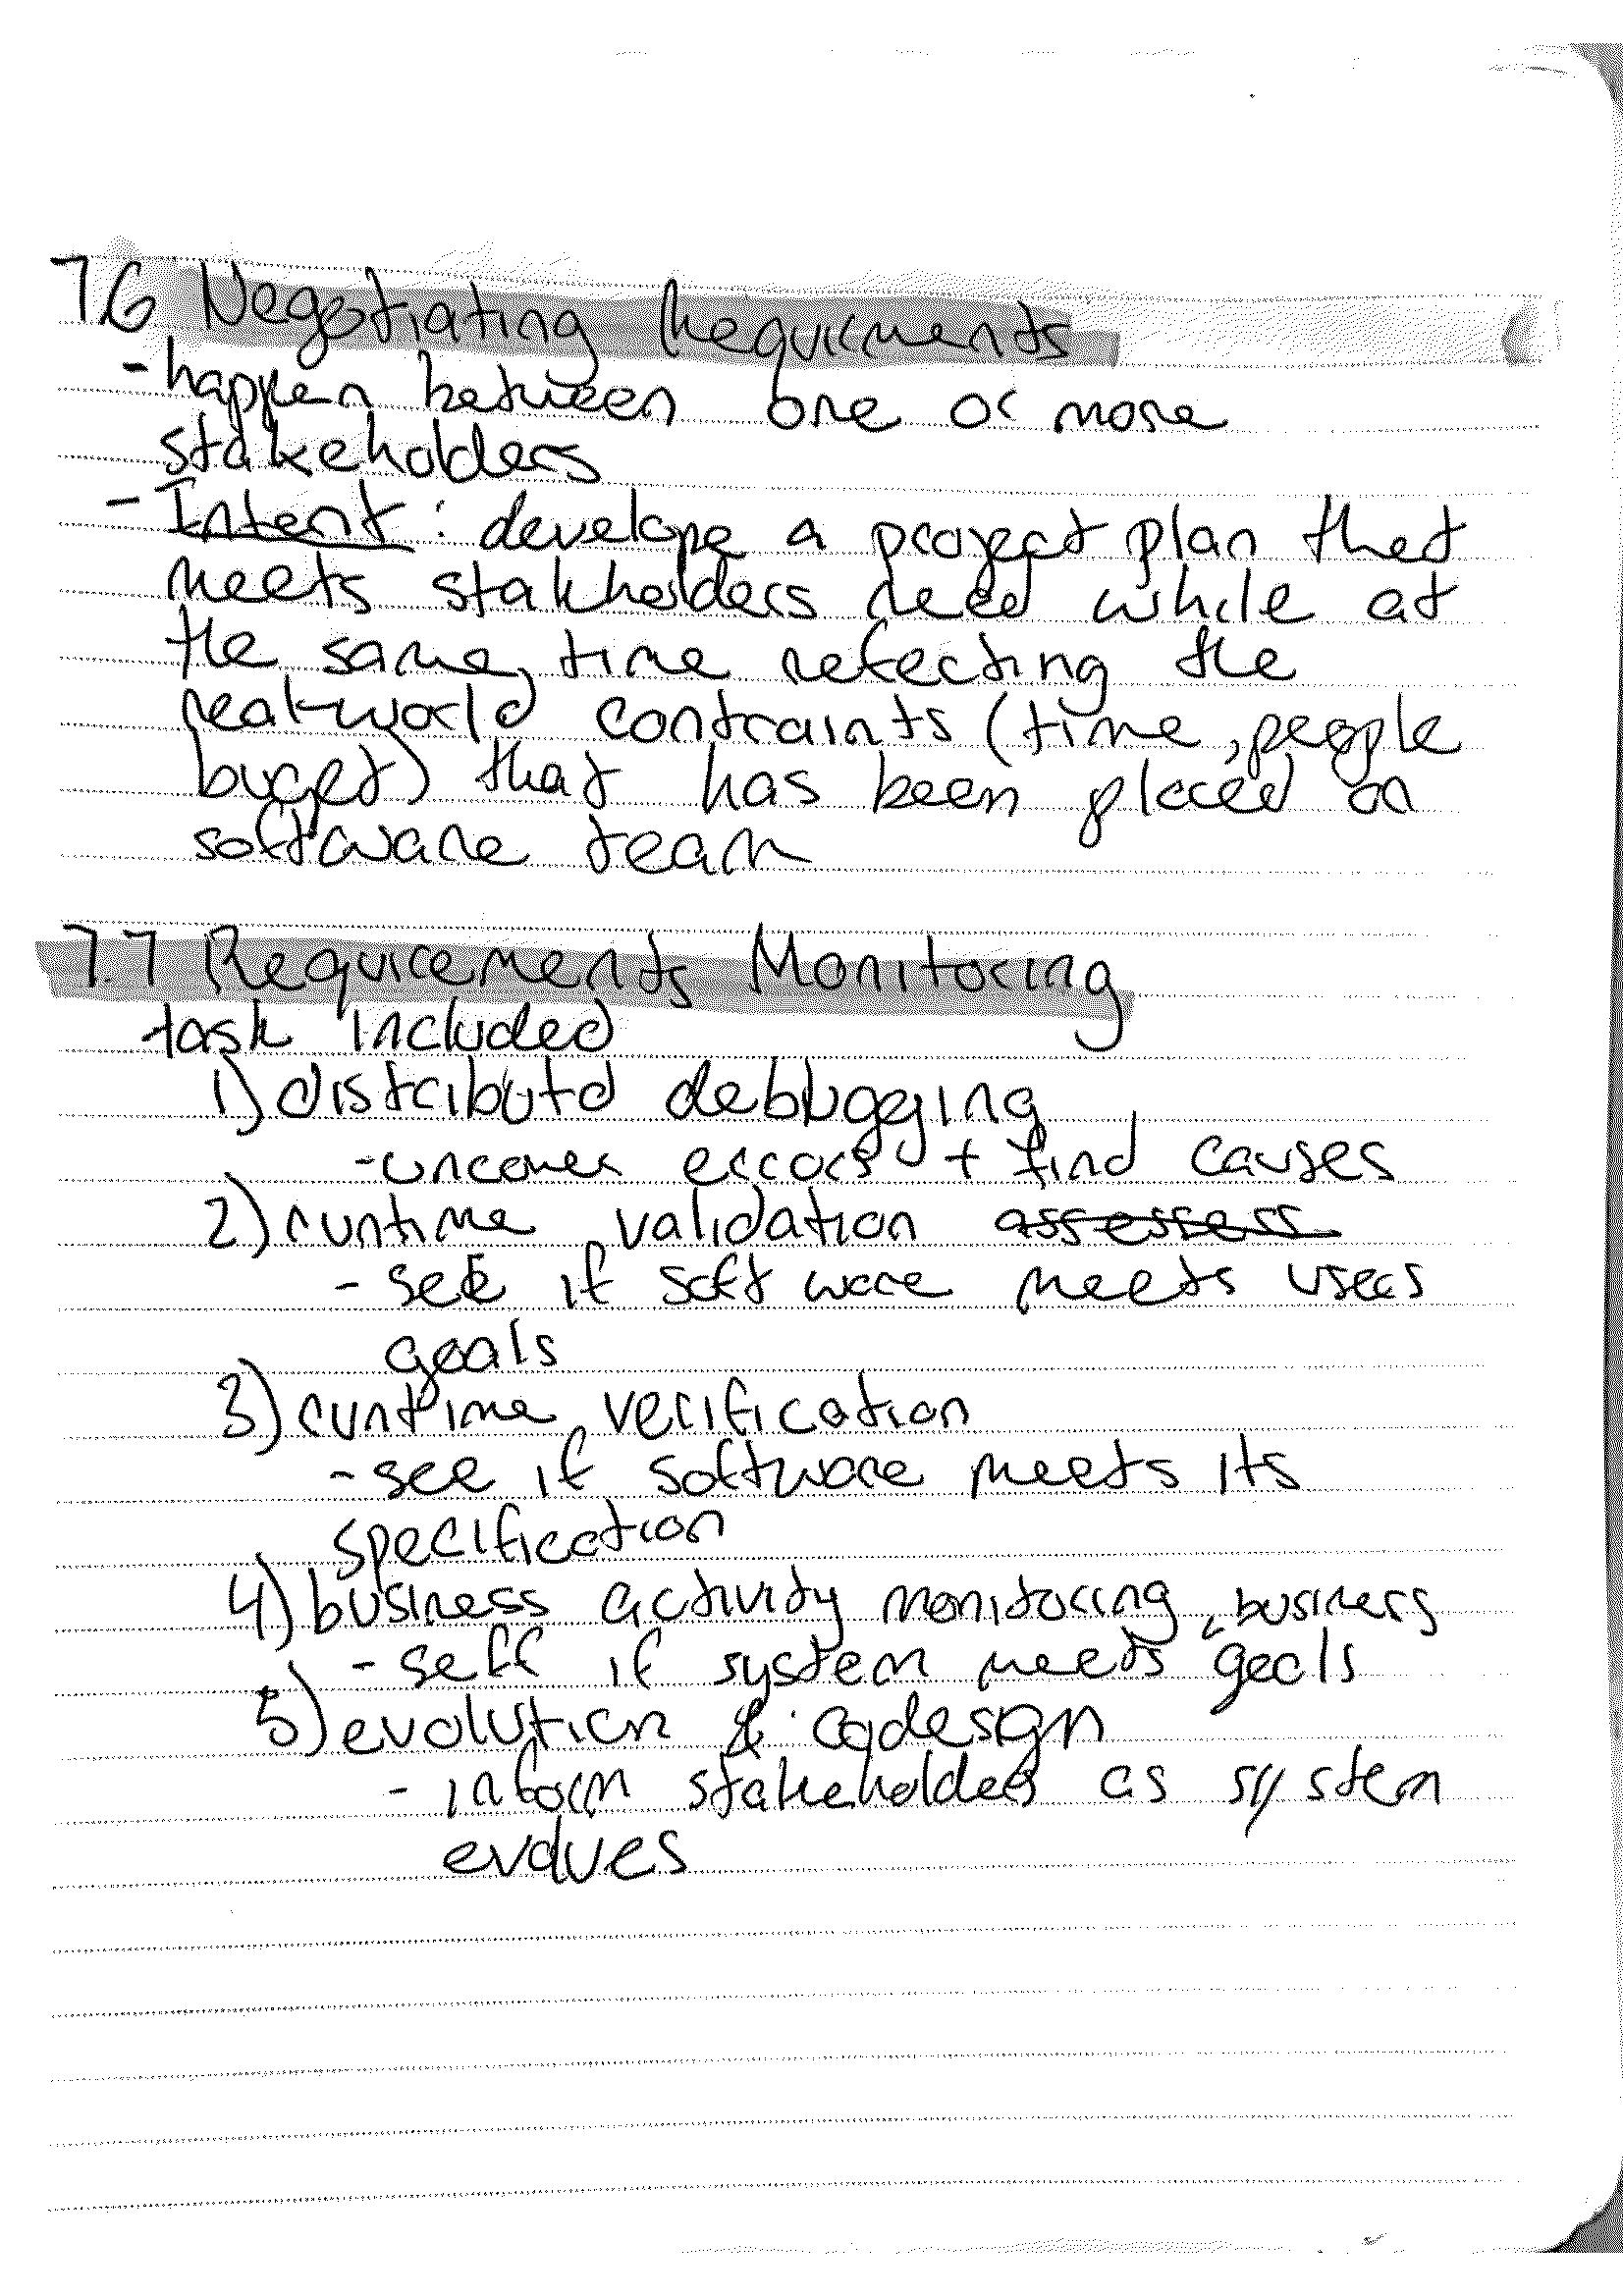 7.6 Negotiating Requirments
- happen between one or more
stakeholders
- Intent : develope a project plan that
meets stakholders need while at
the same time refecting the
real-world contraints (time, people
buget) that has been placed on
software team
7.7 Requirements Monitoring
task included
1) distributd debugging
- uncover errors + find causes
2) runtime validation assessess
- see if software meets users
goals
3) runtime verification
- see if software meets its
specification
4) business activity monitoring
- seff if system meets business goals
5) evolution & codesign
- inform stakeholders as system
evolves